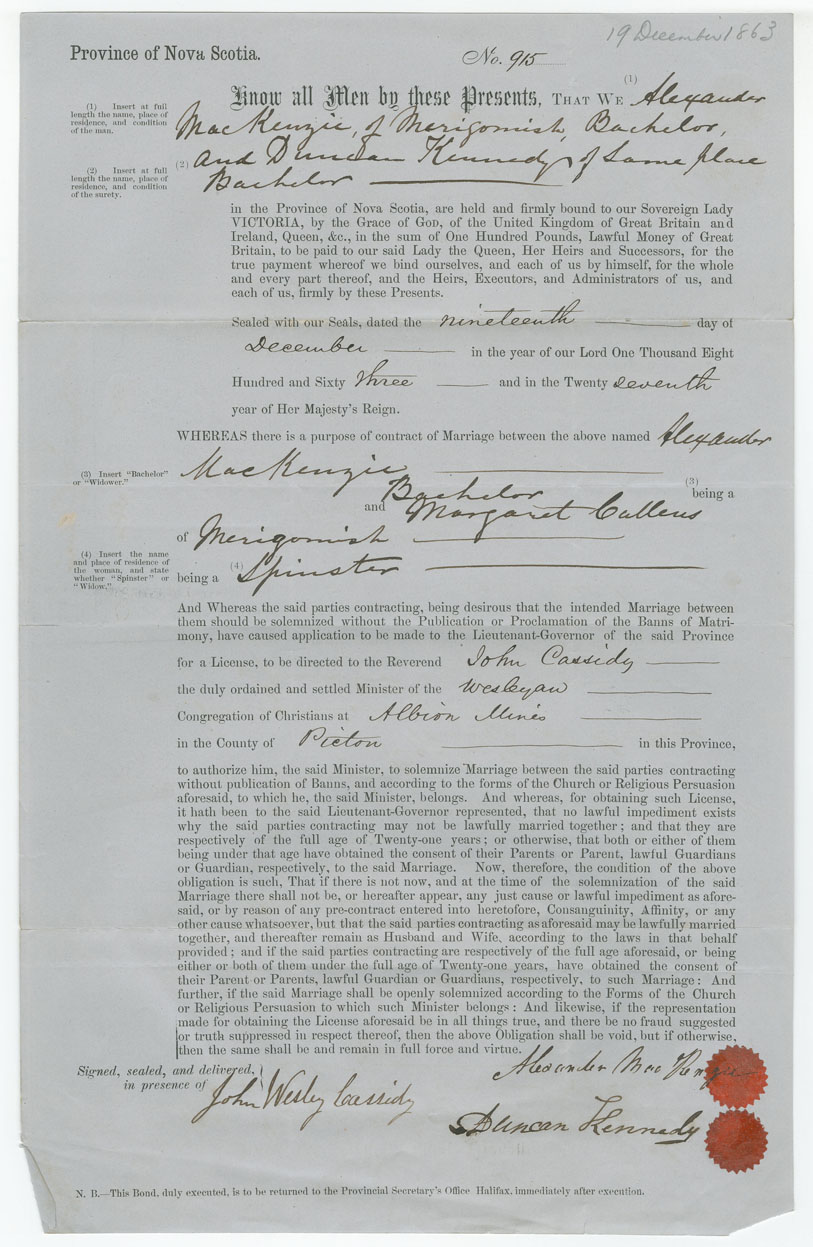 19 December 1863
Province of Nova Scotia.
No. 915
(1)
Know all Men by these Presents, THAT WE Alexander
(1) Insert at full
length the name, place of
residence, and condition
of the man.
MacKenzie, of Merigomish, Bachelor,
(2) and Duncan Kennedy of Same place
(2) Insert at full
length the name, place of
residence, and condition
of the surety.
Bachelor
in the Province of Nova Scotia, are held and firmly bound to our Sovereign Lady
VICTORIA, by the Grace of GOD, of the United Kingdom of Great Britain and
Ireland, Queen, &c., in the sum of One Hundred Pounds, Lawful Money of Great
Britain, to be paid to our said Lady the Queen, Her Heirs and Successors, for the
true payment whereof we bind ourselves, and each of us by himself, for the whole
and every part thereof, and the Heirs, Executors, and Administrators of us, and
each of us, firmly by these Presents.
Sealed with our Seals, dated the nineteenth day of
December in the year of our Lord One Thousand Eight
Hundred and Sixty three and in the Twenty seventh
year of Her Majesty's Reign.
WHEREAS there is a purpose of contract of Marriage between the above named Alexander
MacKenzie
(3) Insert "Bachelor"
or "Widower."
(3)
Bachelor being a
and Margaret Cullens
of Merigomish
(4) Insert the name
and place of residence of
the woman, and state
whether "Spinster" or
"Widow."
being a (4) Spinster
And Whereas the said parties contracting, being desirous that the intended Marriage between
them should be solemnized without the Publication or Proclamation of the Banns of Matri-
mony, have caused application to be made to the Lieutenant-Governor of the said Province
for a License, to be directed to the Reverend John Cassidy
the duly ordained and settled Minister of the Wesleyan
Congregation of Christians at Albion Mines
in the County of Picton in this Province,
to authorize him, the said Minister, to solemnize Marriage between the said parties contracting
without publication of Banns, and according to the forms of the Church or Religious Persuasion
aforesaid, to which he, the said Minister, belongs. And whereas, for obtaining such License,
it hath been to the said Lieutenant-Governor represented, that no lawful impediment exists
why the said parties contracting may not be lawfully married together; and that they are
respectively of the full age of Twenty-one years; or otherwise, that both or either of them
being under that age have obtained the consent of their Parents or Parent, lawful Guardians
or Guardian, respectively, to the said Marriage. Now, therefore, the condition of the above
obligation is such, That if there is not now, and at the time of the solemnization of the said
Marriage there shall not be, or hereafter appear, any just cause or lawful impediment as afore-
said, or by reason of any pre-contract entered into heretofore, Consanguinity, Affinity, or any
other cause whatsoever, but that the said parties contracting as aforesaid may be lawfully married
together, and thereafter remain as Husband and Wife, according to the laws in that behalf
provided; and if the said parties contracting are respectively of the full age aforesaid, or being
either or both of them under the full age of Twenty-one years, have obtained the consent of
their Parent or Parents, lawful Guardian or Guardians, respectively, to such Marriage: And
further, if the said Marriage shall be openly solemnized according to the Forms of the Church
or Religious Persuasion to which such Minister belongs: And likewise, if the representation
made for obtaining the License aforesaid be in all things true, and there be no fraud suggested
or truth suppressed in respect thereof, then the above Obligation shall be void, but if otherwise,
then the same shall be and remain in full force and virtue.
Signed, sealed, and delivered,
in presence of
Alexander MacKenzie
John Wesley Cassidy
Duncan Kennedy
N. B.—This Bond, duly executed, is to be returned to the Provincial Secretary's Office Halifax, immediately after execution.